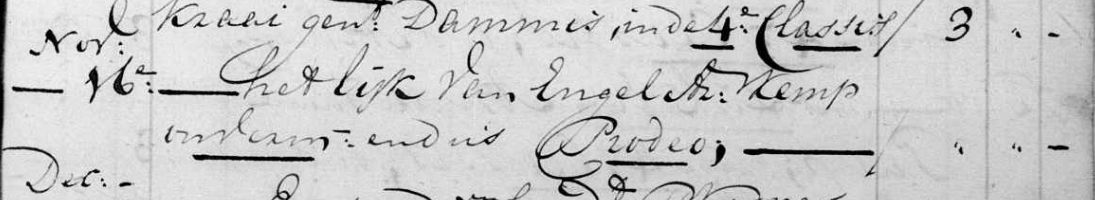 kraai gent. Dammis, in de 4e. Classis / 3 " -
Nov:
16e. het lijk van Engel Az: Kemp
onderm: en dus Prodeo; / " " -
Dec: